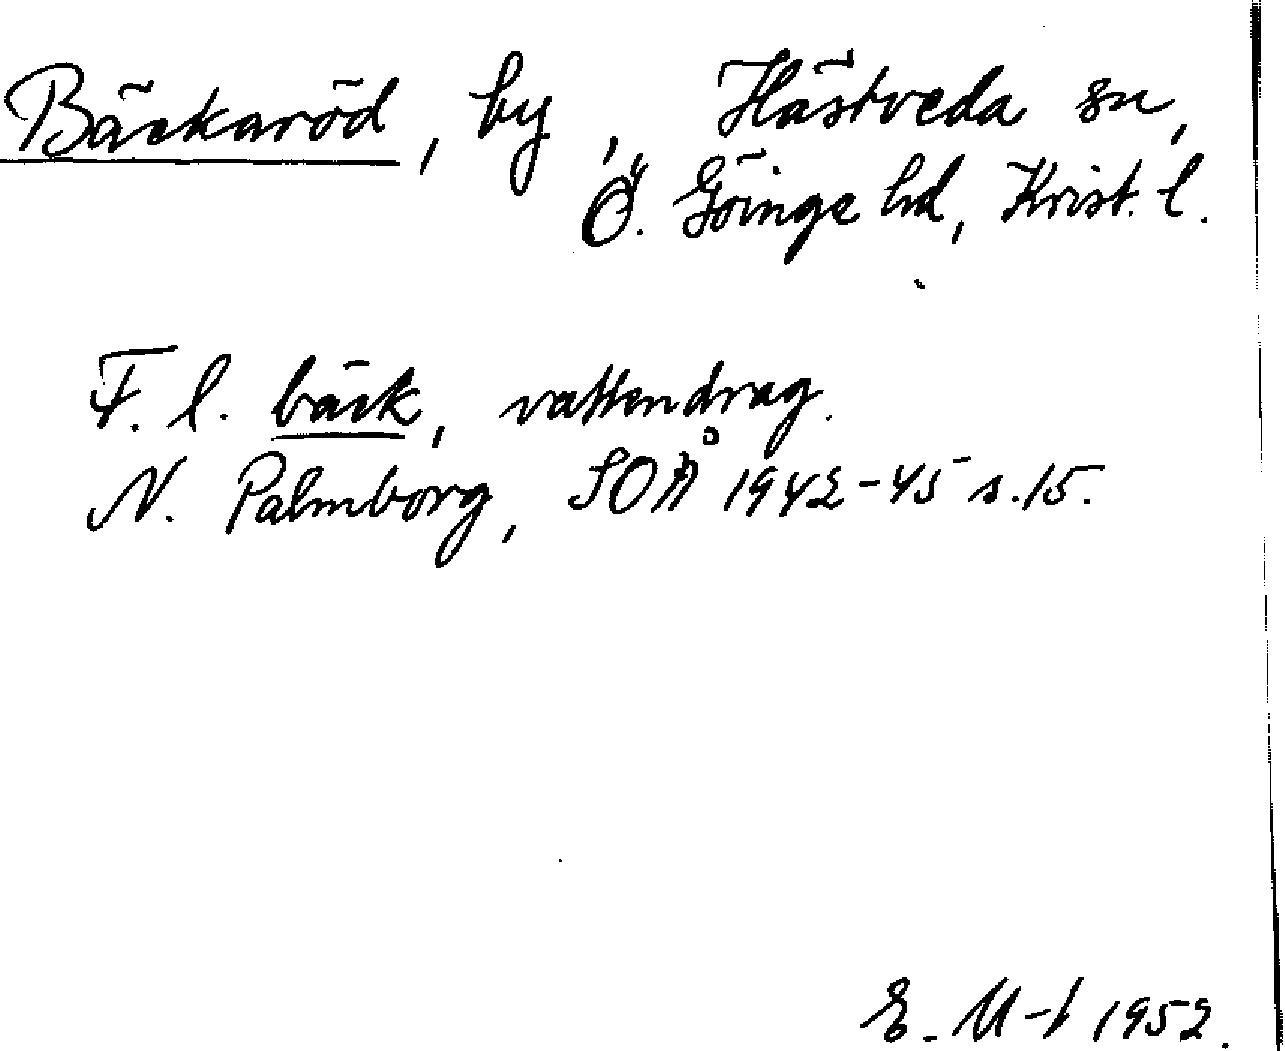 Bäckaröd, by, Hästveda sn,
Ö. Göinge hd, Krist. l.
F. l. bäck, vattendrag.
N. Palmborg, SOÅ 1942-45 s. 15.
E. M-t 1952.